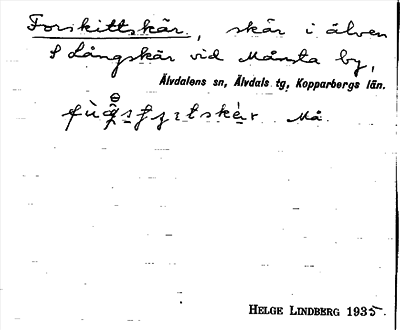 Forskittskär, skär i älven
S Långskär vid Månsta by,
Älvdalens sn, Älvdals tg, Kopparbergs län.
Må.
HELGE LINDBERG 1935.